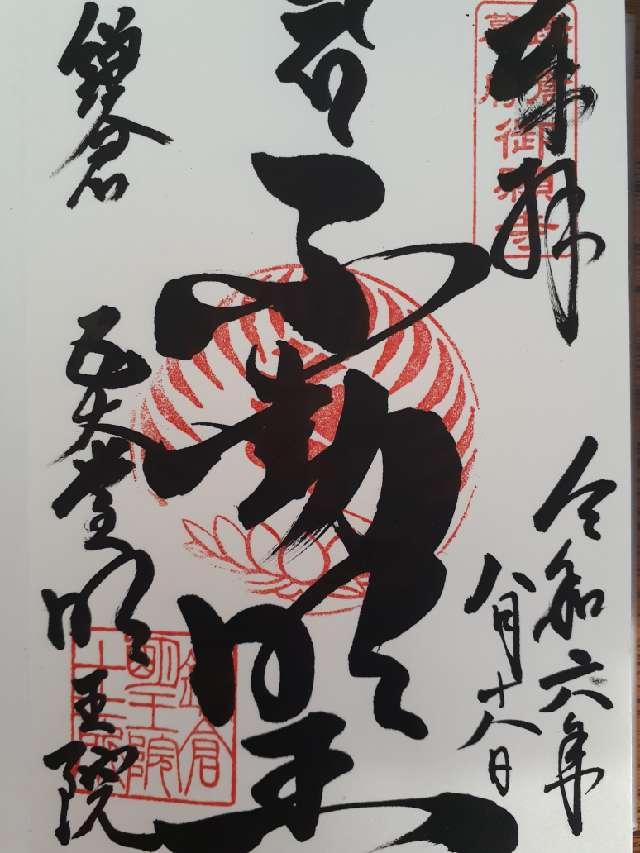 奉拝
令和六年
八月十八日
不動明王
鎌倉
五大堂明王院
幕府御願寺
鎌倉
明王院